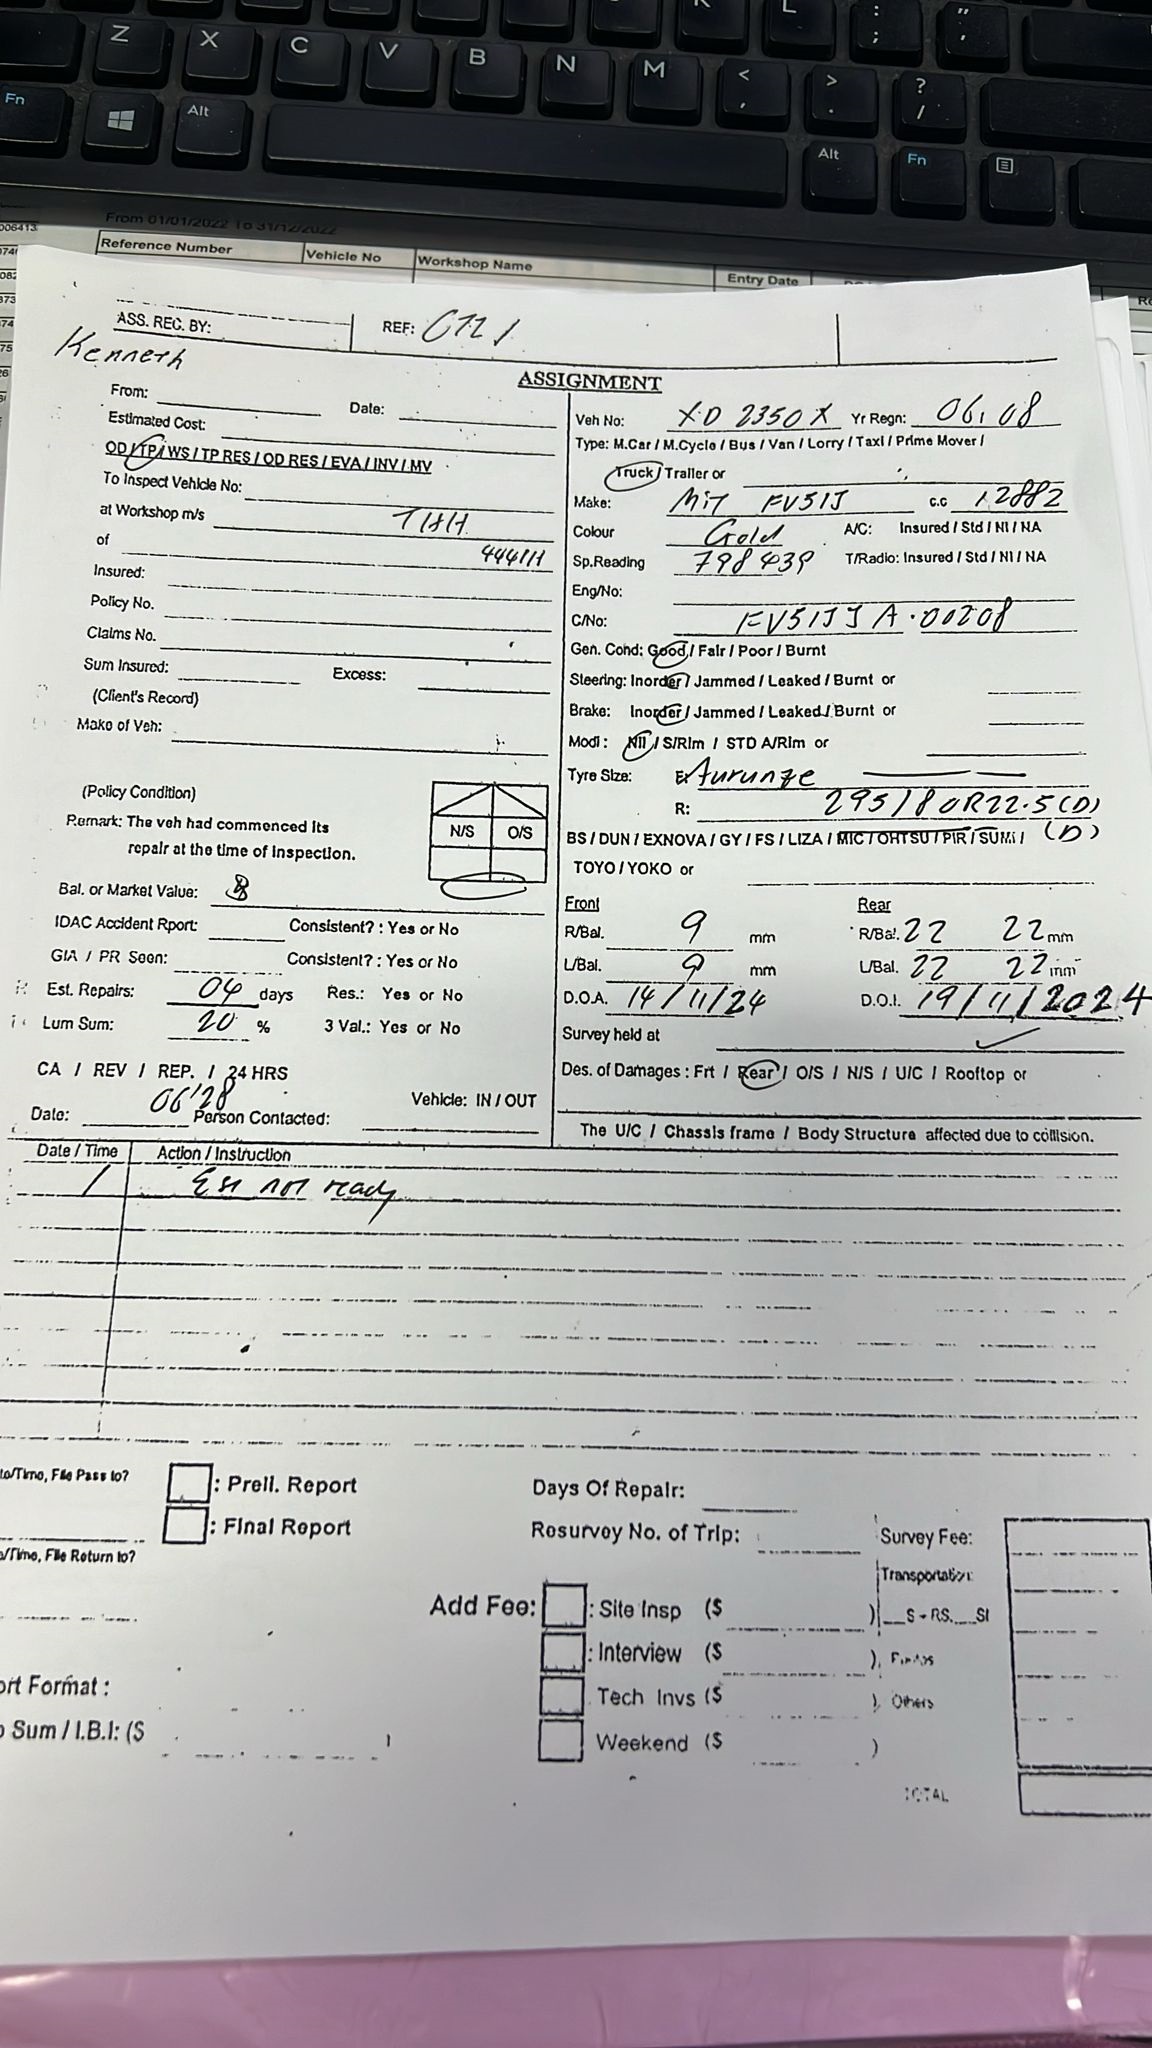 Z X C V B N M < , > . ? /
Fn Alt Alt Fn
From 01/01/2022 To 31/12/2022
Reference Number Vehicle No Workshop Name Entry Date
ASS. REC. BY: REF:
Kenneth
ASSIGNMENT
From: Date:
Estimated Cost:
OD / TP / WS / TP RES / OD RES / EVA / INV / MV
To Inspect Vehicle No:
at Workshop m/s
of
Insured:
Policy No.
Claims No.
Sum Insured: Excess:
(Client's Record)
Make of Veh:
(Policy Condition)
Remark: The veh had commenced its
repair at the time of inspection.
N/S O/S
Bal. or Market Value:
IDAC Accident Rport: Consistent? : Yes or No
GIA / PR Seen: Consistent? : Yes or No
Est. Repairs: 04 days Res.: Yes or No
Lum Sum: 20 % 3 Val.: Yes or No
CA / REV / REP. / 24 HRS
06'28 Vehicle: IN / OUT
Date: Person Contacted:
Veh No: XD 2350X Yr Regn: 06.08
Type: M.Car / M.Cycle / Bus / Van / Lorry / Taxi / Prime Mover /
Truck / Trailer or
Make: Mit FV51J c.c 12882
Colour Gold A/C: Insured / Std / NI / NA
Sp.Reading 798439 T/Radio: Insured / Std / NI / NA
Eng/No:
C/No: FV51JJA.00208
Gen. Cond: Good / Fair / Poor / Burnt
Steering: Inorder / Jammed / Leaked / Burnt or
Brake: Inorder / Jammed / Leaked / Burnt or
Modi : Nil / S/Rim / STD A/Rim or
Tyre Size:
R: 295/80R22.5 (D)
BS / DUN / EXNOVA / GY / FS / LIZA / MIC / OHTSU / PIR / SUMI / (D)
TOYO / YOKO or
Front Rear
R/Bal. 9 mm R/Bal. 22 22 mm
L/Bal. 9 mm L/Bal. 22 22 mm
D.O.A. 14/11/24 D.O.I. 19/11/2024
Survey held at
Des. of Damages : Frt / Rear / O/S / N/S / U/C / Rooftop or
The U/C / Chassis frame / Body Structure affected due to collision.
Date / Time Action / Instruction
/ Est not ready
File Pass to? : Preli. Report Days Of Repair:
: Final Report Resurvey No. of Trip: Survey Fee:
File Return to? Transportation:
Add Fee: : Site Insp ($ ) S - RS. SI
: Interview ($ )
Format : Tech Invs ($ ) Others
Sum / I.B.I: ($ ) Weekend ($ )
TOTAL